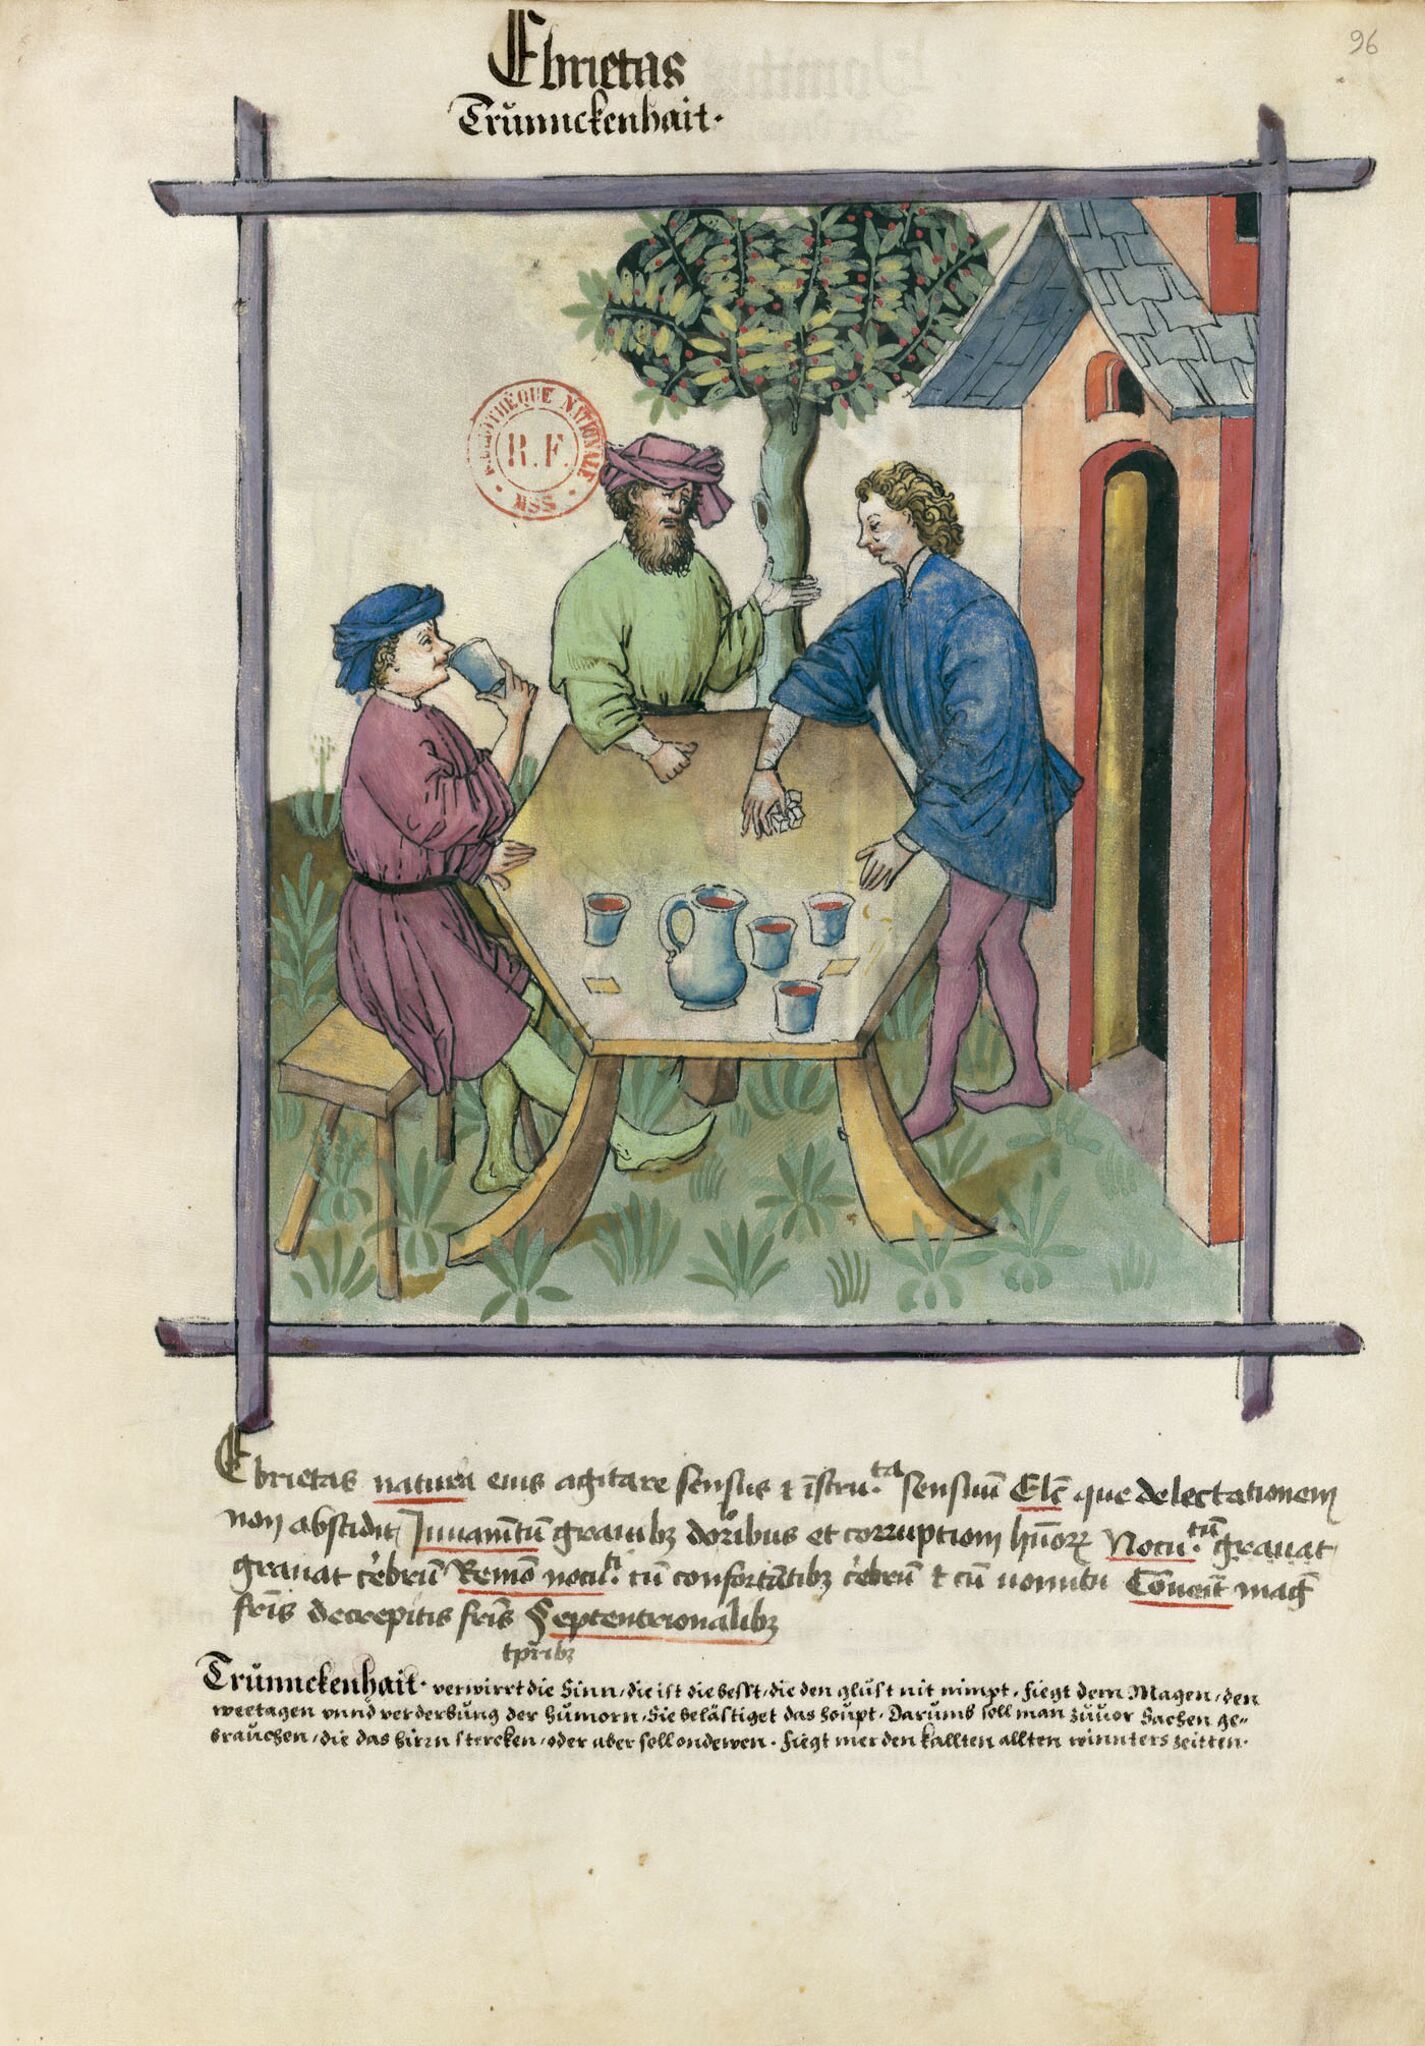 96
Ebrietas
Trůnnckenhait.
BIBLIOTHÈQUE NATIONALE
R.F.
MSS
Ebrietas natura eius agitare sensus ⁊ īstru.ta sensuū Elc̄ que delectationem
non abscidit Juuam̄tū grauibꝫ dolōribus et corruptiom hūorꝝ Nocu.tū grauat
grauat cẽbrũ Remō nocũ. cū confortātibꝫ cẽbrũ ⁊ cū uomitu Cōueīt maḡ
fr̄is decrepitis fr̄is Septentrionalibꝫ
tp̄ribꝫ
Trůnnckenhait. verwirrt die Sinn/die ist die besst/die den glust nit nimpt. fiegt dem Magen/den
weetagen vnnd verderbůng der hůmorn. Sie belästiget das houpt. Darumb soll man zůuor Sachen ge=
brauchen/die das hirrn stercken/oder aber soll ondewen. fiegt mer den kallten allten winnters zeitten.